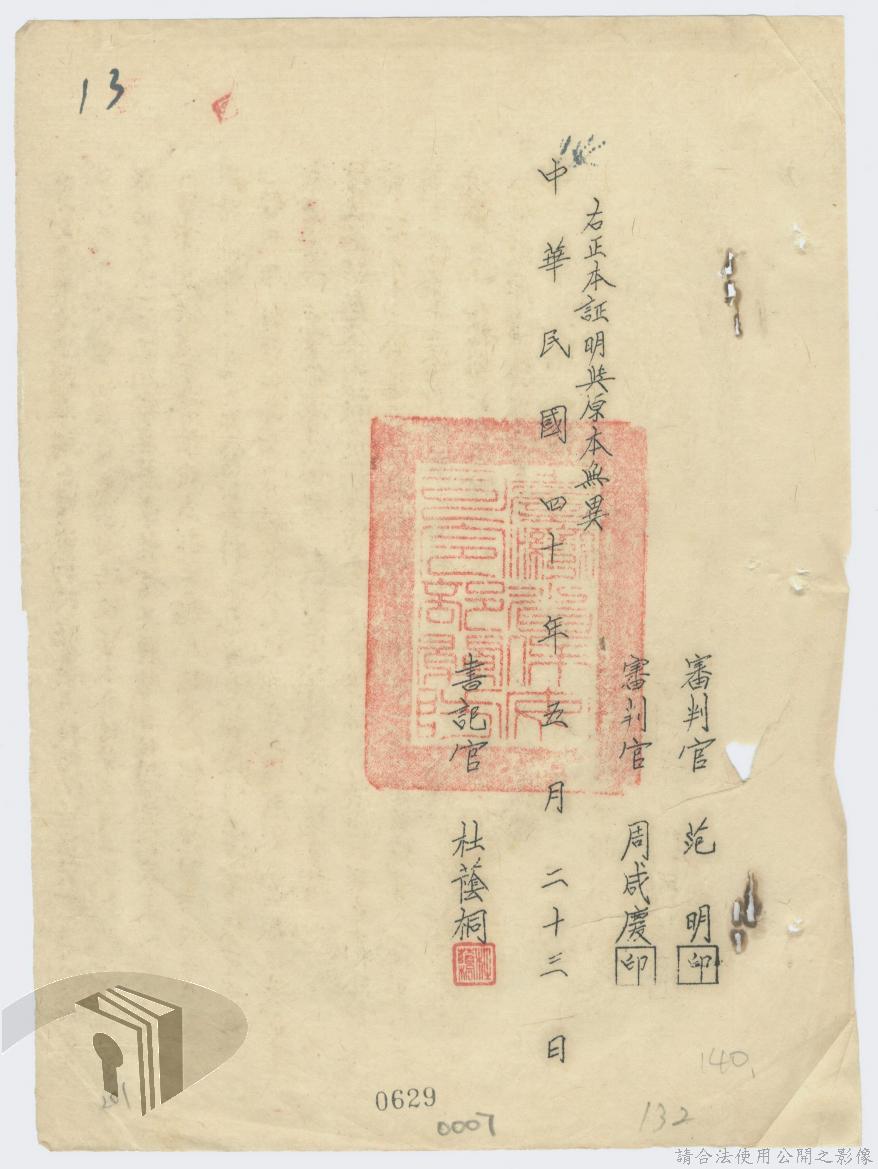 13
審判官 范明 印
審判官 周咸慶 印
右正本証明與原本無異
中華民國四十年五月二十三日
書記官 杜蔭桐
0629
0007
132
140
請合法使用公開之影像